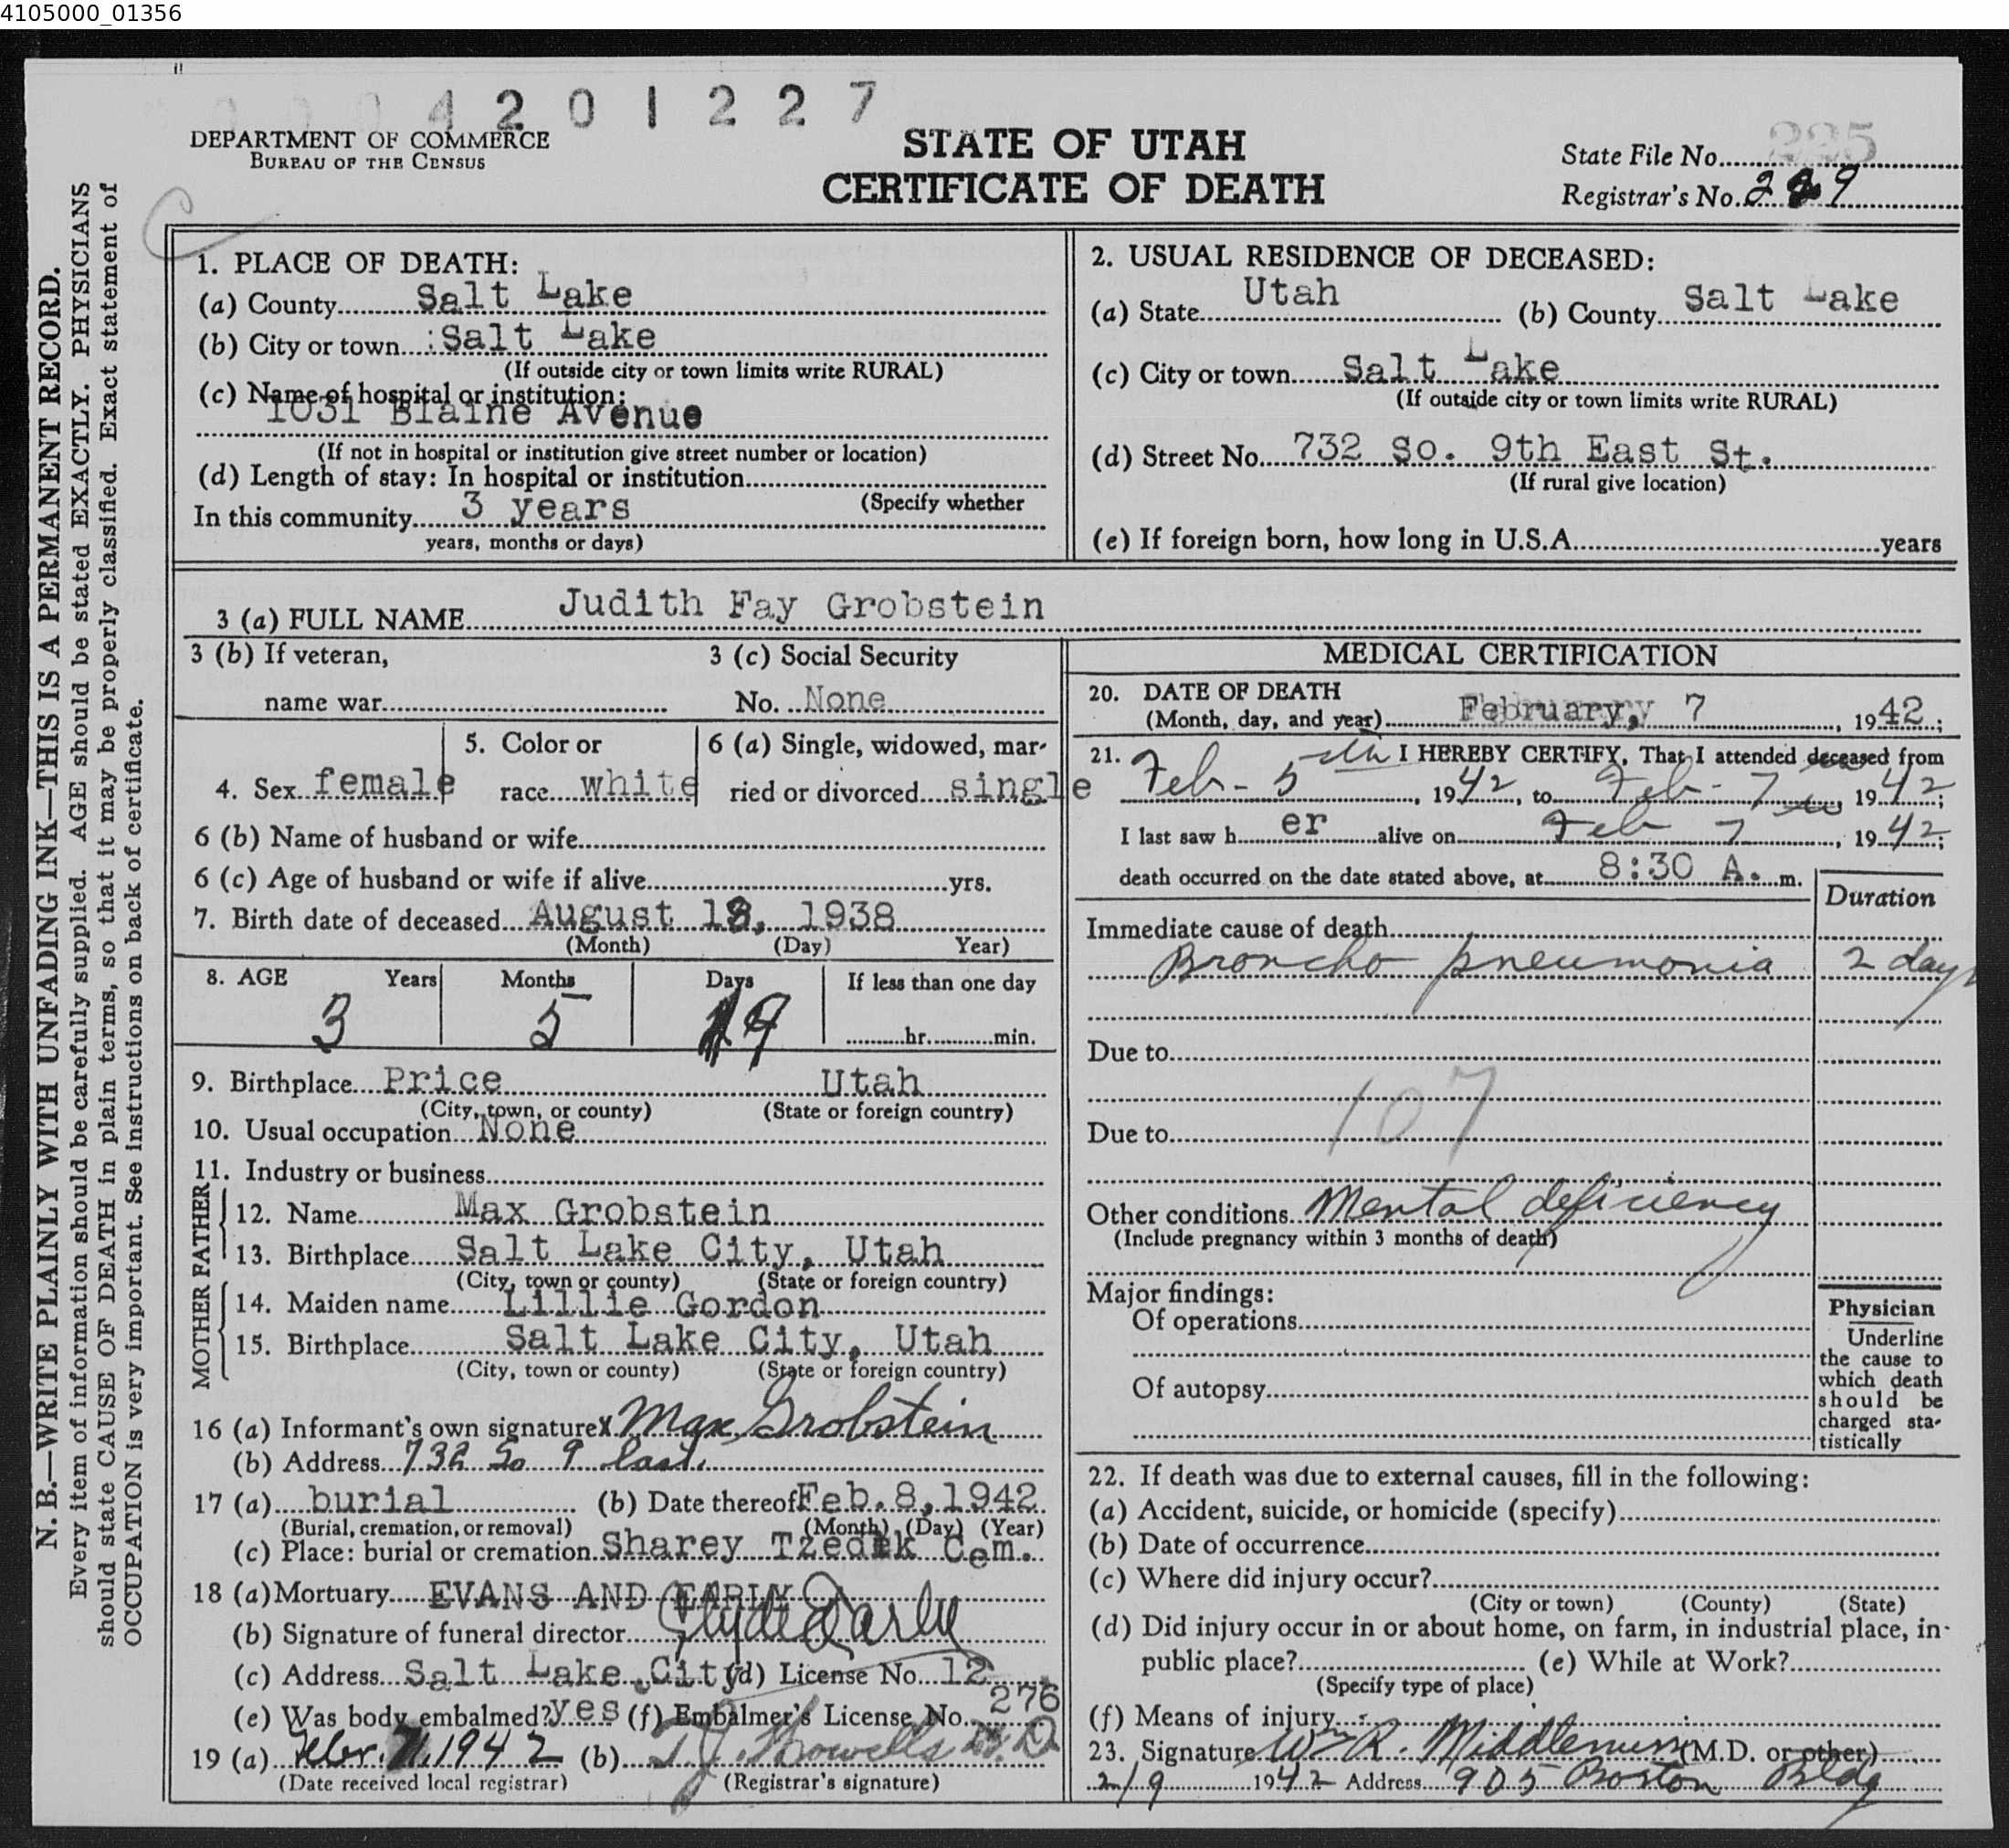 4105000_01356
4 2 0 1 2 2 7
DEPARTMENT OF COMMERCE
BUREAU OF THE CENSUS
STATE OF UTAH
CERTIFICATE OF DEATH
State File No. 225
Registrar's No.
N. B.—WRITE PLAINLY WITH UNFADING INK—THIS IS A PERMANENT RECORD.
Every item of information should be carefully supplied. AGE should be stated EXACTLY. PHYSICIANS
should state CAUSE OF DEATH in plain terms, so that it may be properly classified. Exact statement of
OCCUPATION is very important. See instructions on back of certificate.
1. PLACE OF DEATH:
(a) County Salt Lake
(b) City or town :Salt Lake
(If outside city or town limits write RURAL)
(c) Name of hospital or institution:
1031 Blaine Avenue
(If not in hospital or institution give street number or location)
(d) Length of stay: In hospital or institution
(Specify whether
In this community 3 years
years, months or days)
2. USUAL RESIDENCE OF DECEASED:
(a) State Utah (b) County Salt Lake
(c) City or town Salt Lake
(If outside city or town limits write RURAL)
(d) Street No. 732 So. 9th East St.
(If rural give location)
(e) If foreign born, how long in U.S.A. years
3 (a) FULL NAME Judith Fay Grobstein
3 (b) If veteran,
name war
3 (c) Social Security
No. None
4. Sex female
5. Color or
race white
6 (a) Single, widowed, mar-
ried or divorced single
6 (b) Name of husband or wife
6 (c) Age of husband or wife if alive yrs.
7. Birth date of deceased August 18, 1938
(Month) (Day) Year)
8. AGE Years Months Days If less than one day
3 5 19 hr. min.
9. Birthplace Price Utah
(City, town, or county) (State or foreign country)
10. Usual occupation None
11. Industry or business
FATHER
12. Name Max Grobstein
13. Birthplace Salt Lake City, Utah
(City, town or county) (State or foreign country)
MOTHER
14. Maiden name Lillie Gordon
15. Birthplace Salt Lake City, Utah
(City, town or county) (State or foreign country)
16 (a) Informant's own signature X Max Grobstein
(b) Address 732 So 9 East.
17 (a) burial (b) Date thereof Feb. 8, 1942
(Burial, cremation, or removal) (Month) (Day) (Year)
(c) Place: burial or cremation Sharey Tzedik Cem.
18 (a) Mortuary EVANS AND EARLY
(b) Signature of funeral director Clyde Early
(c) Address Salt Lake City (d) License No. 12
(e) Was body embalmed? yes (f) Embalmer's License No. 276
19 (a) Febr. 1942 (b) T. J. Howells M.D.
(Date received local registrar) (Registrar's signature)
MEDICAL CERTIFICATION
20. DATE OF DEATH
(Month, day, and year) February, 7, 1942;
21. I HEREBY CERTIFY, That I attended deceased from
Feb - 5th, 1942, to Feb - 7th, 1942;
I last saw her alive on Feb 7, 1942;
death occurred on the date stated above, at 8:30 A.m.
Duration
Immediate cause of death
Broncho pneumonia 2 days
Due to
107
Due to
Other conditions Mental deficiency
(Include pregnancy within 3 months of death)
Major findings:
Of operations
Of autopsy
Physician
Underline
the cause to
which death
should be
charged sta-
tistically
22. If death was due to external causes, fill in the following:
(a) Accident, suicide, or homicide (specify)
(b) Date of occurrence
(c) Where did injury occur?
(City or town) (County) (State)
(d) Did injury occur in or about home, on farm, in industrial place, in-
public place? (e) While at Work?
(Specify type of place)
(f) Means of injury
23. Signature Wm R. Middlemiss (M.D. or other)
2/9 1942 Address 905 Boston Bldg